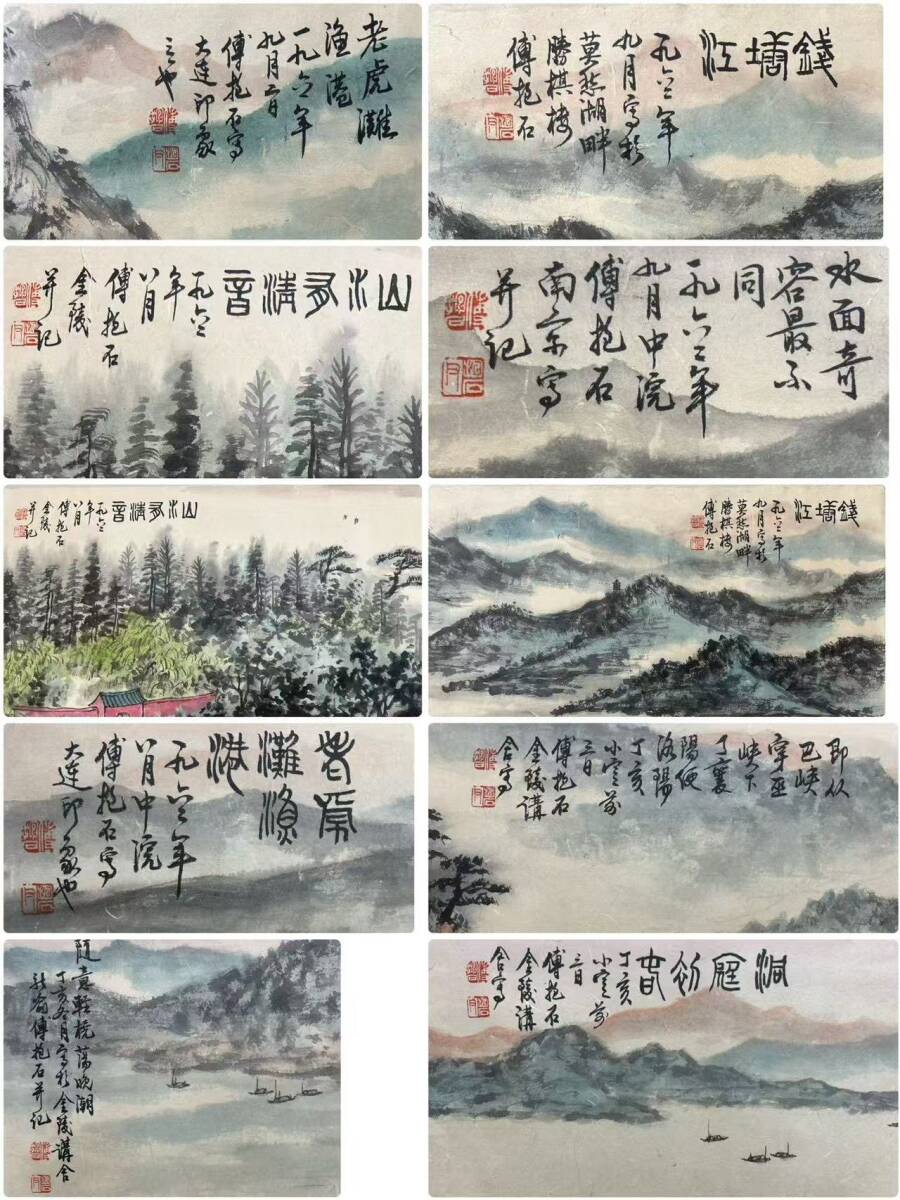 老虎灘
漁港
一九六一年
九月二日
傅抱石寫
大連印象
之也
錢塘江
一九六三年
九月寫於
莫愁湖畔
勝棋樓
傅抱石
山水有清音
一九六三
年
八月
傅抱石
金陵
并記
水面奇
容最不
同
一九六二年
九月中浣
傅抱石
南京寫
并記
山水有清音
一九六三
年
八月
傅抱石
金陵
并記
錢塘江
一九六三年
九月寫於
莫愁湖畔
勝棋樓
傅抱石
老虎
灘漁
港
一九六一年
八月中浣
傅抱石寫
大連印象也
即從
巴峽
穿巫
峽下
了襄
陽便
洛陽
丁亥
小寒前
三日
傅抱石
金陵講
舍寫
隨意輕橈蕩晚潮
丁亥 月寫於金陵講舍
新喻傅抱石并記
洞庭初春
丁亥
小寒前
三日
傅抱石
金陵講
舍寫